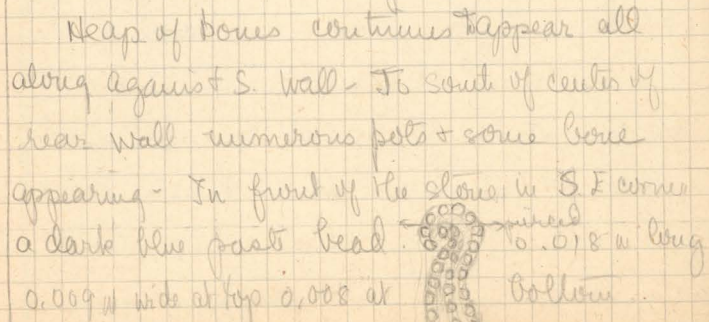 Heap of bones continues to appear all
along against S. Wall - To south of center of
rear wall numerous pots + some bone
appearing - In front of the stone, in S. E corner
a dark blue paste bead. pierced
0.018 m long
0.009 m wide at top 0,008 at bottom.